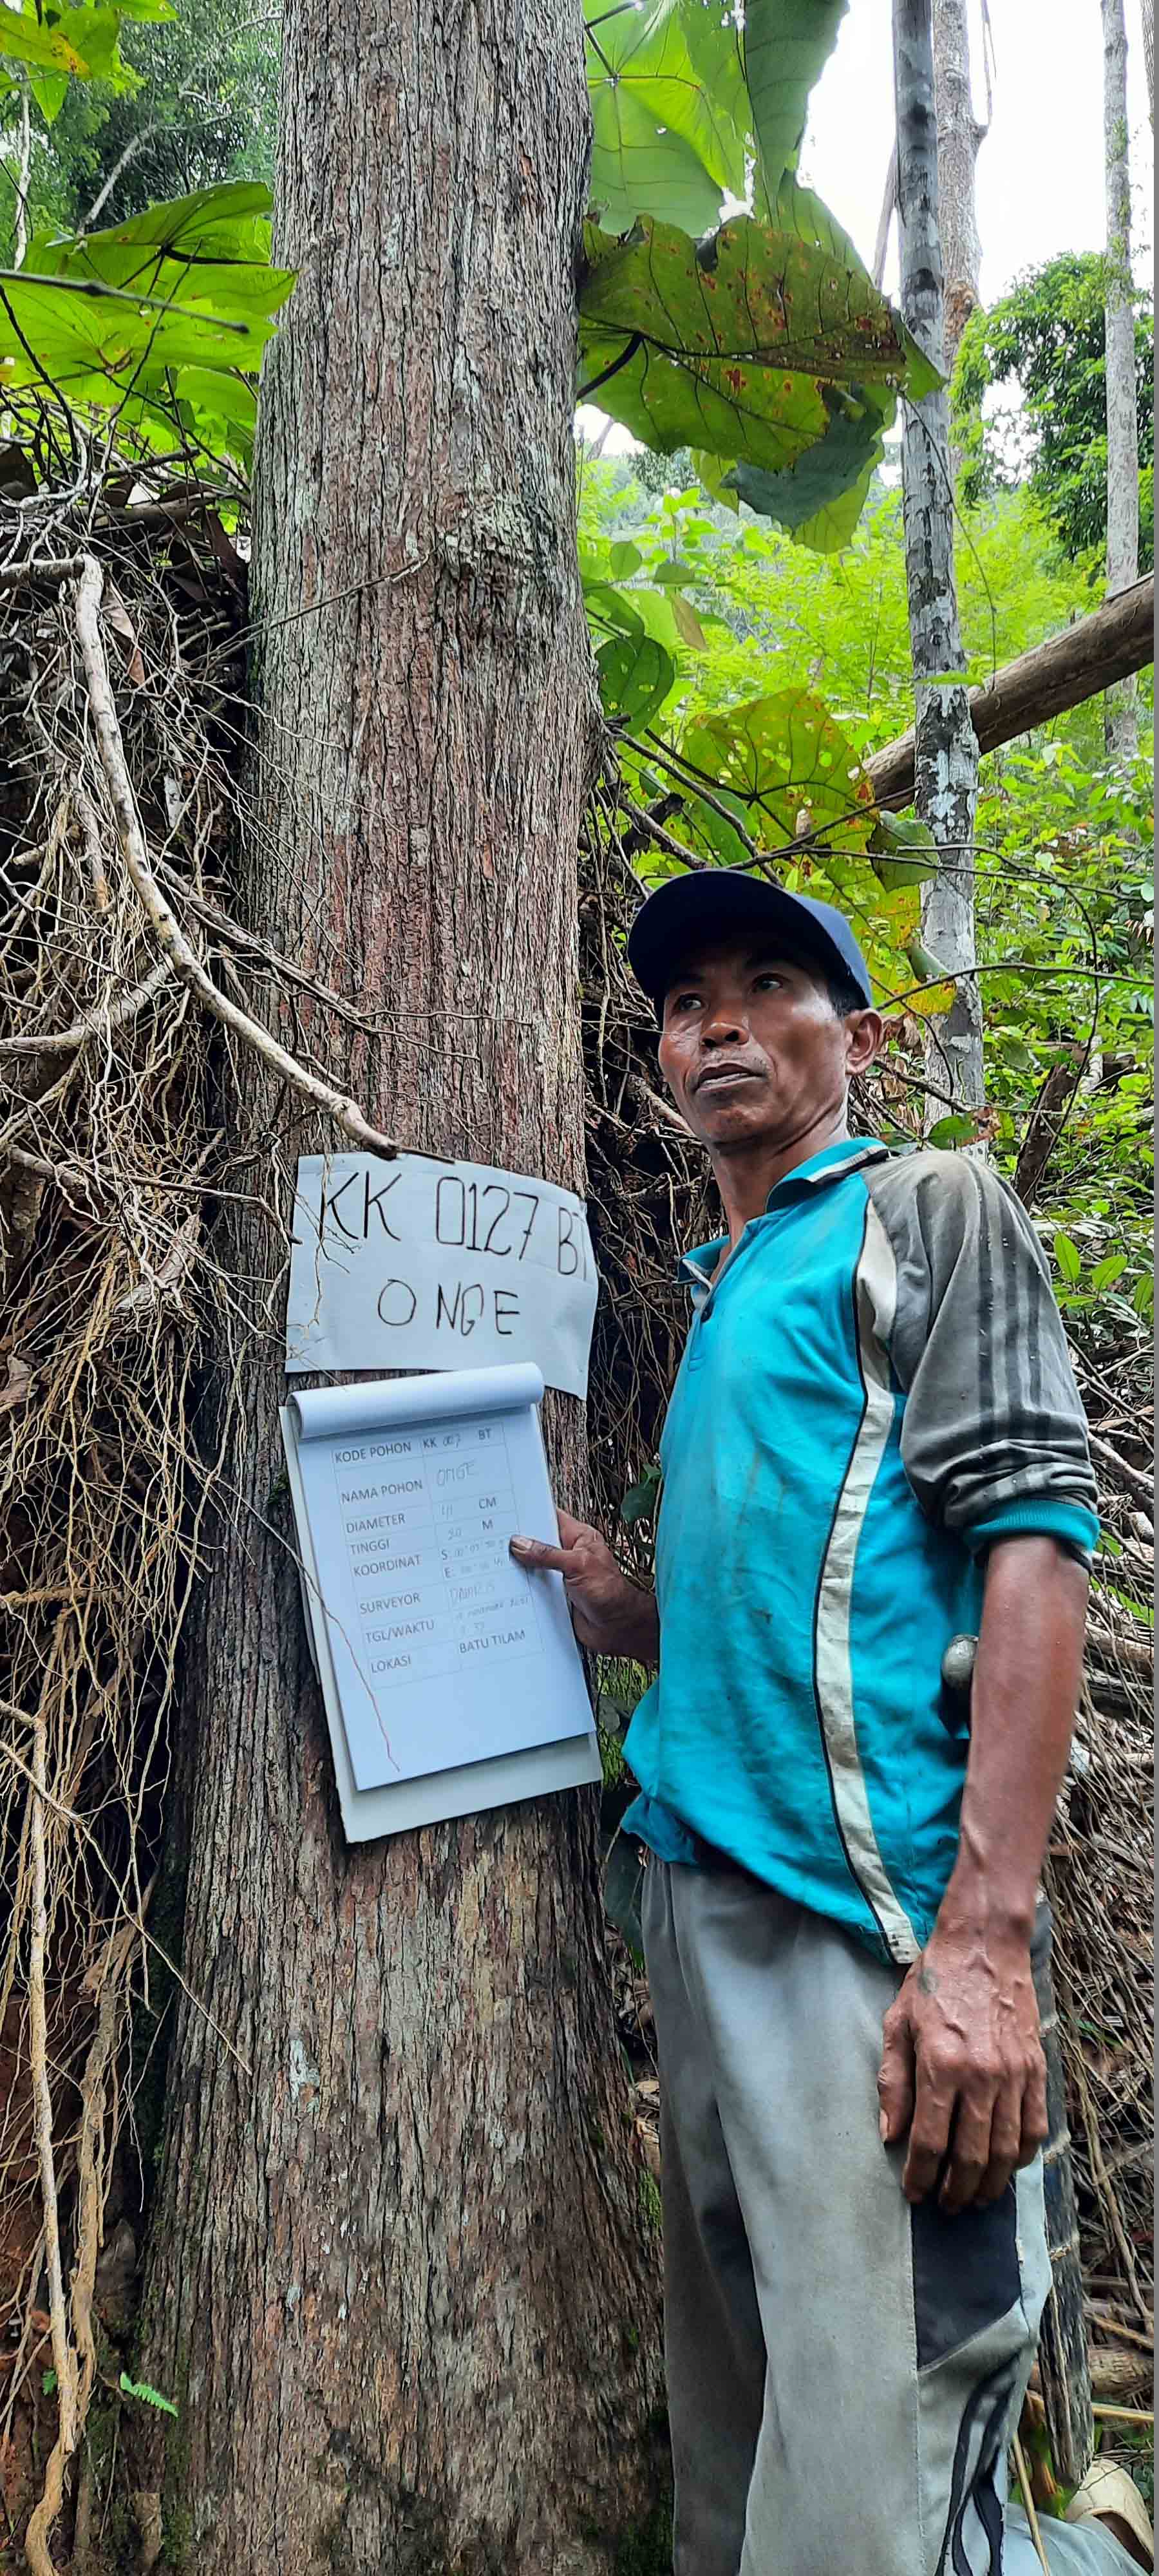 KK 0127 BT
ONGE
KODE POHON KK BT
NAMA POHON ONGE
DIAMETER CM
TINGGI 20 M
KOORDINAT S:
E:
SURVEYOR
TGL/WAKTU
LOKASI BATU TILAM